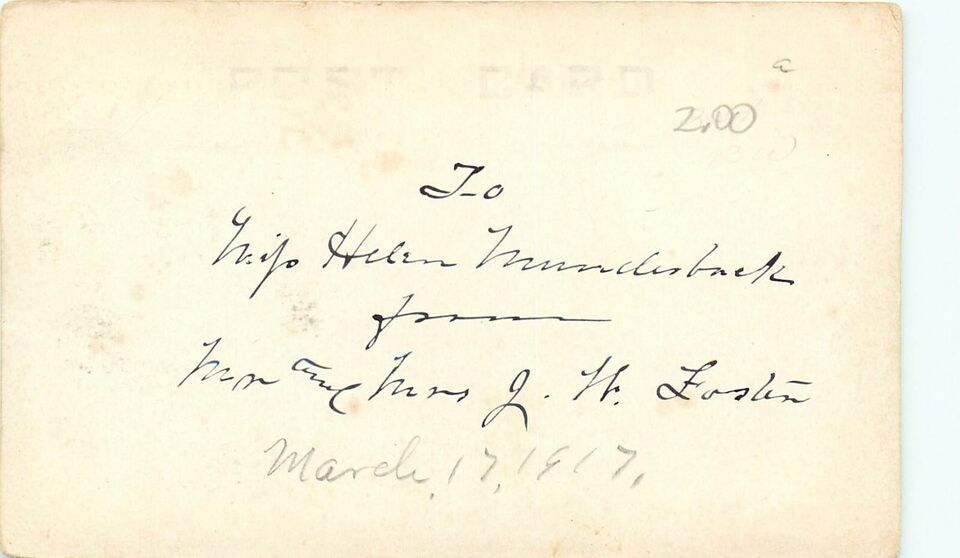 POST CARD
a
2.00
To
Miss Helen Mundesback
from
Mr and Mrs J. W. Foster
March, 17, 1917,